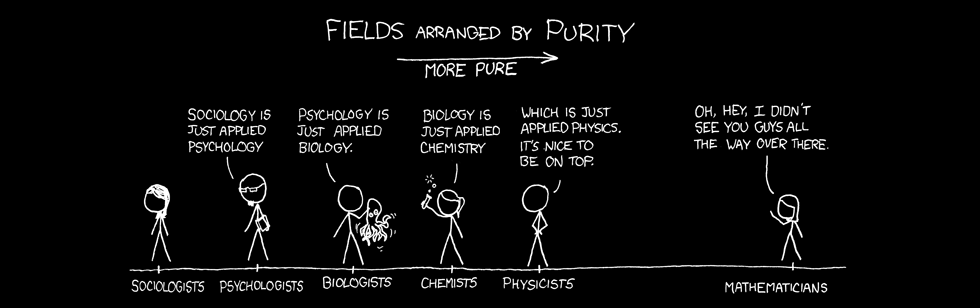 FIELDS ARRANGED BY PURITY
MORE PURE
SOCIOLOGY IS
JUST APPLIED
PSYCHOLOGY
PSYCHOLOGY IS
JUST APPLIED
BIOLOGY.
BIOLOGY IS
JUST APPLIED
CHEMISTRY
WHICH IS JUST
APPLIED PHYSICS.
IT'S NICE TO
BE ON TOP.
OH, HEY, I DIDN'T
SEE YOU GUYS ALL
THE WAY OVER THERE.
SOCIOLOGISTS
PSYCHOLOGISTS
BIOLOGISTS
CHEMISTS
PHYSICISTS
MATHEMATICIANS